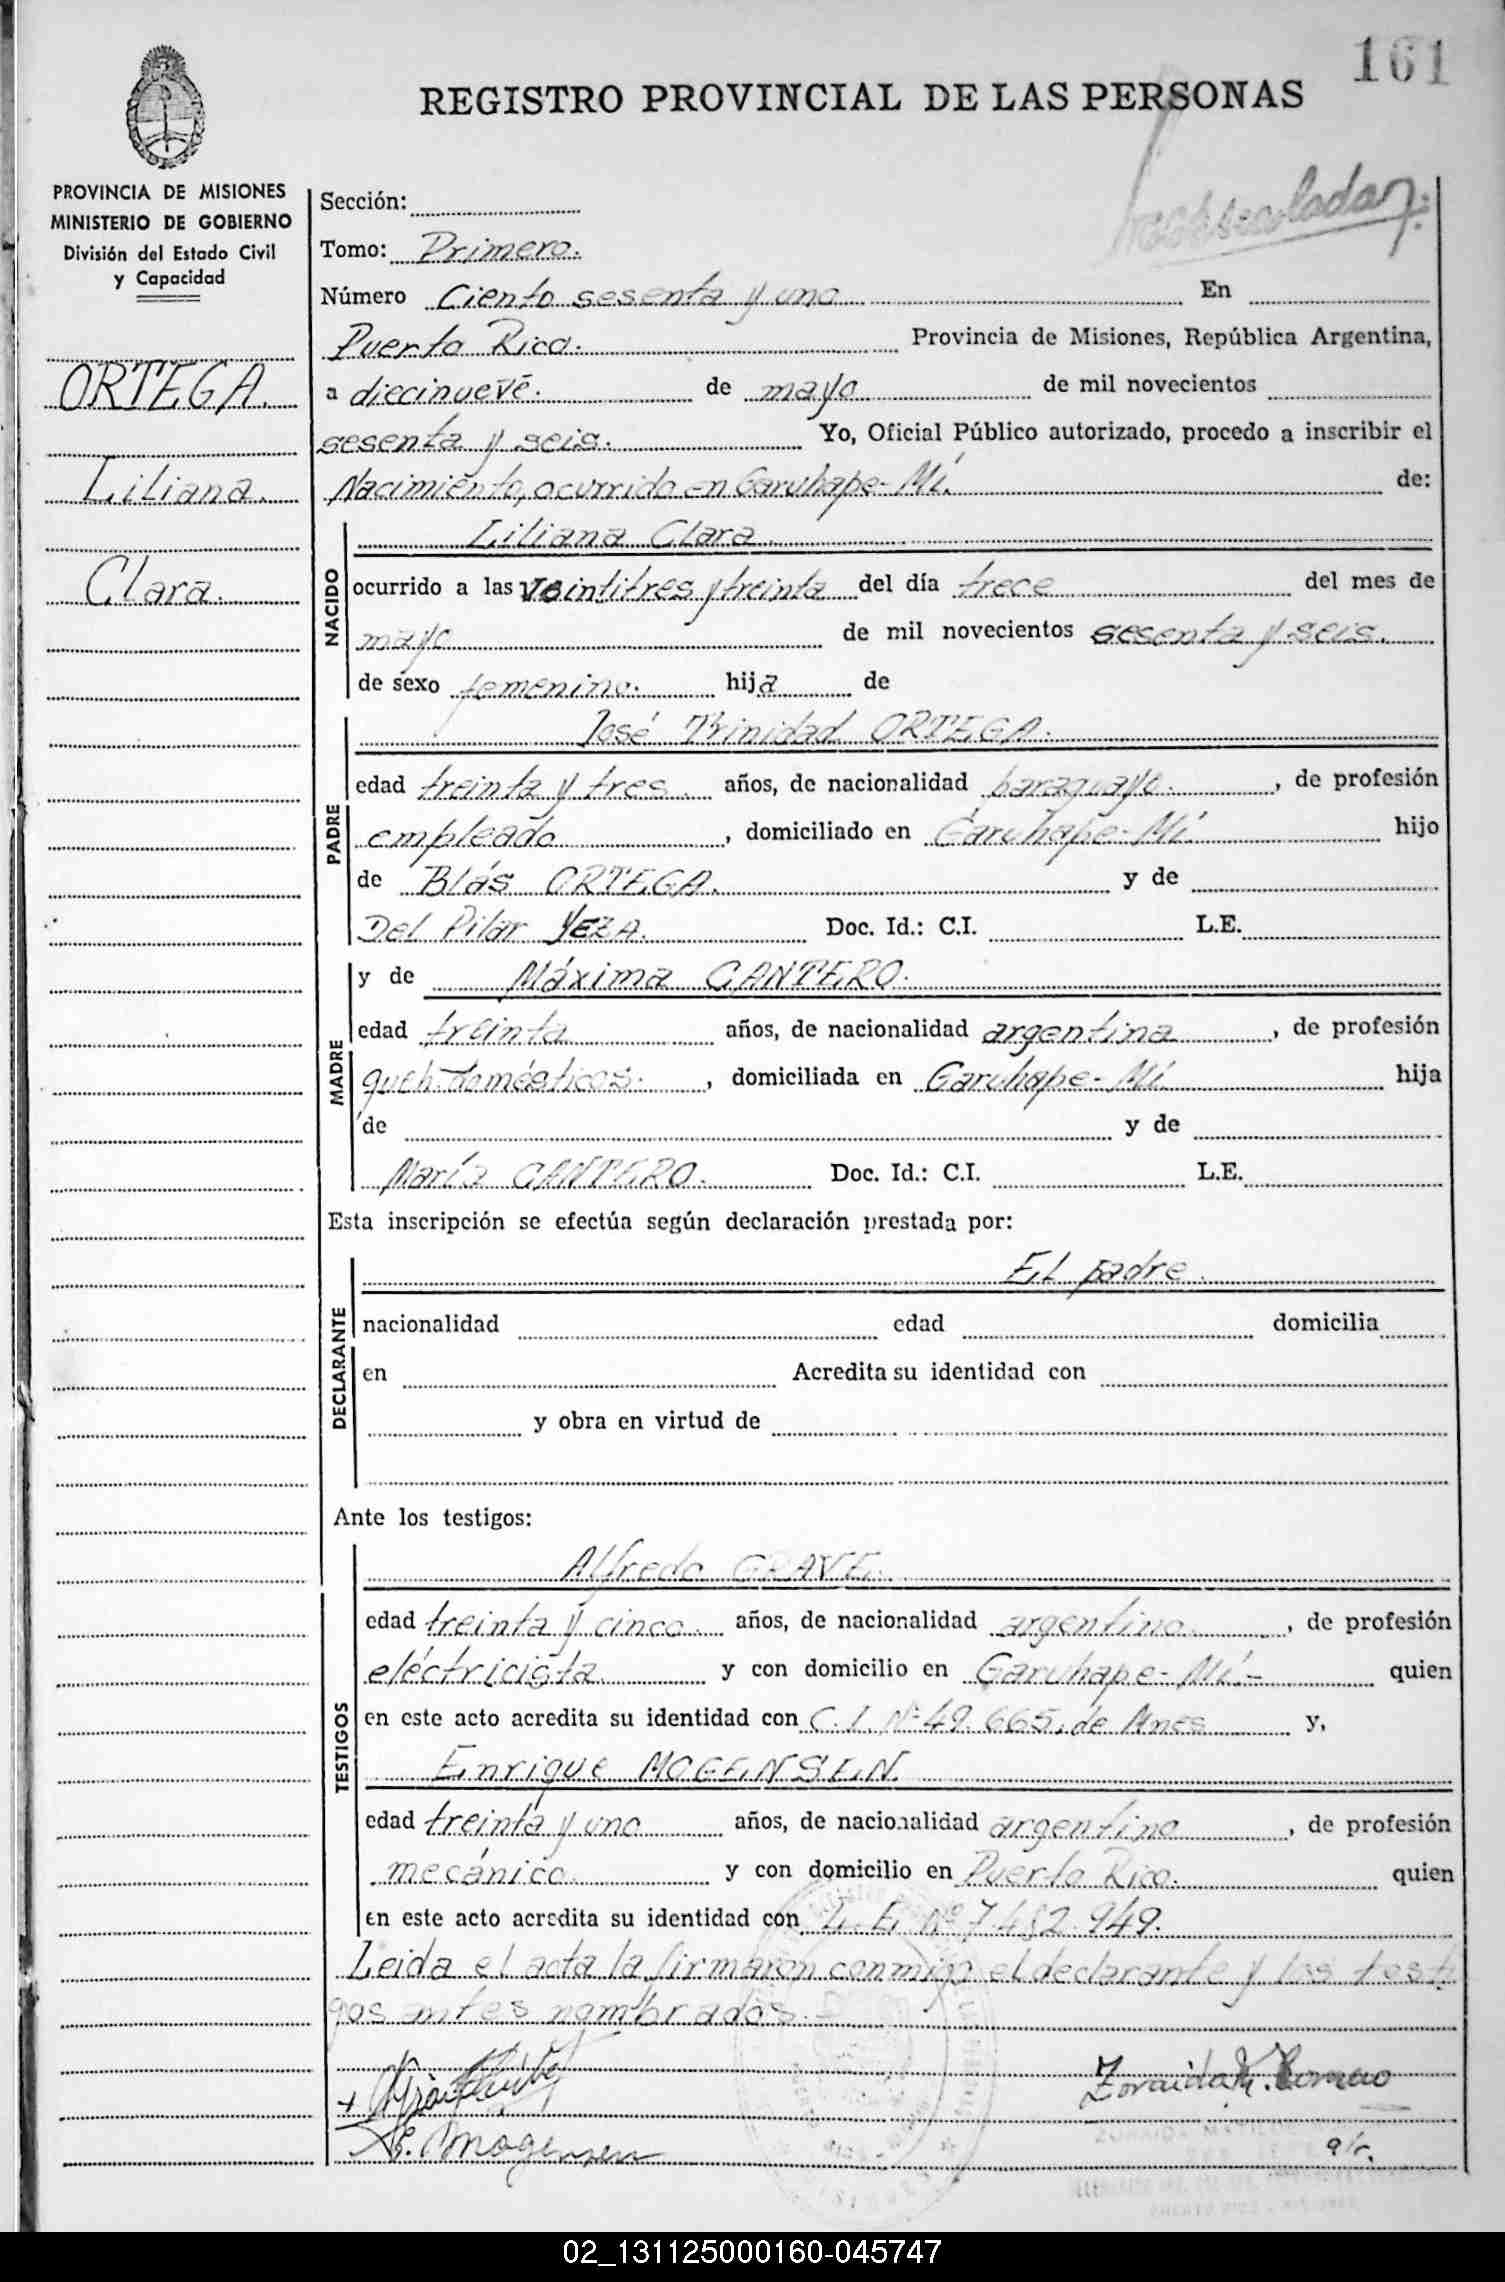 161
REGISTRO PROVINCIAL DE LAS PERSONAS
PROVINCIA DE MISIONES
MINISTERIO DE GOBIERNO
División del Estado Civil
y Capacidad
ORTEGA.
Liliana.
Clara.
Sección:
Tomo: Primero.
Número Ciento sesenta y uno En
Puerto Rico. Provincia de Misiones, República Argentina,
a diecinueve. de mayo de mil novecientos
sesenta y seis. Yo, Oficial Público autorizado, procedo a inscribir el
Nacimiento, ocurrido en Garuhape-Mí. de:
NACIDO
Liliana Clara
ocurrido a las veintitres y treinta del día trece del mes de
mayo de mil novecientos sesenta y seis.
de sexo femenino. hija de
PADRE
José Trinidad ORTEGA.
edad treinta y tres años, de nacionalidad paraguayo. , de profesión
empleado , domiciliado en Garuhape-Mí hijo
de Blás ORTEGA. y de
Del Pilar YEZA. Doc. Id.: C.I. L.E.
MADRE
y de Máxima CANTERO.
edad treinta años, de nacionalidad argentina , de profesión
queh. domésticos. , domiciliada en Garuhape-Mí hija
de y de
María CANTERO. Doc. Id.: C.I. L.E.
Esta inscripción se efectúa según declaración prestada por:
DECLARANTE
El padre.
nacionalidad edad domicilia
en Acredita su identidad con
y obra en virtud de
Ante los testigos:
TESTIGOS
Alfredo GRAVE.
edad treinta y cinco. años, de nacionalidad argentino. , de profesión
eléctricista. y con domicilio en Garuhape-Mí.- quien
en este acto acredita su identidad con C.I. Nº 49.665. de Mnes y,
Enrique MOGENSEN.
edad treinta y uno años, de nacionalidad argentino , de profesión
mecánico. y con domicilio en Puerto Rico. quien
en este acto acredita su identidad con L.E. Nº 7.482.949.
Leida el acta la firmaron conmigo el declarante y los testi
gos antes nombrados.-
E. Mogensen
02_131125000160-045747